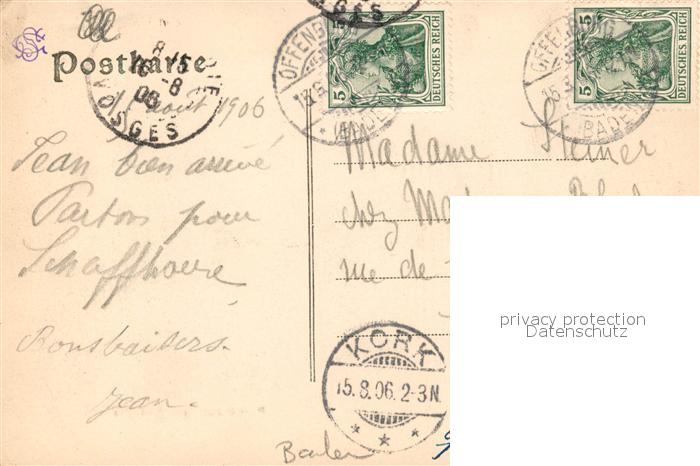 Postkarte
août 1906
Jean bien arrivé
Partons pour
Schaffhouse
Bons baisers.
Jean.
VOSGES
15
8
06
GES
OFFENBURG
(BADEN)
5
DEUTSCHES REICH
OFFENBURG
(BADEN)
5
DEUTSCHES REICH
Madame Steiner
chez
rue de
KORK
15.8.06.2-3N.
* * *
Baden
privacy protection
Datenschutz